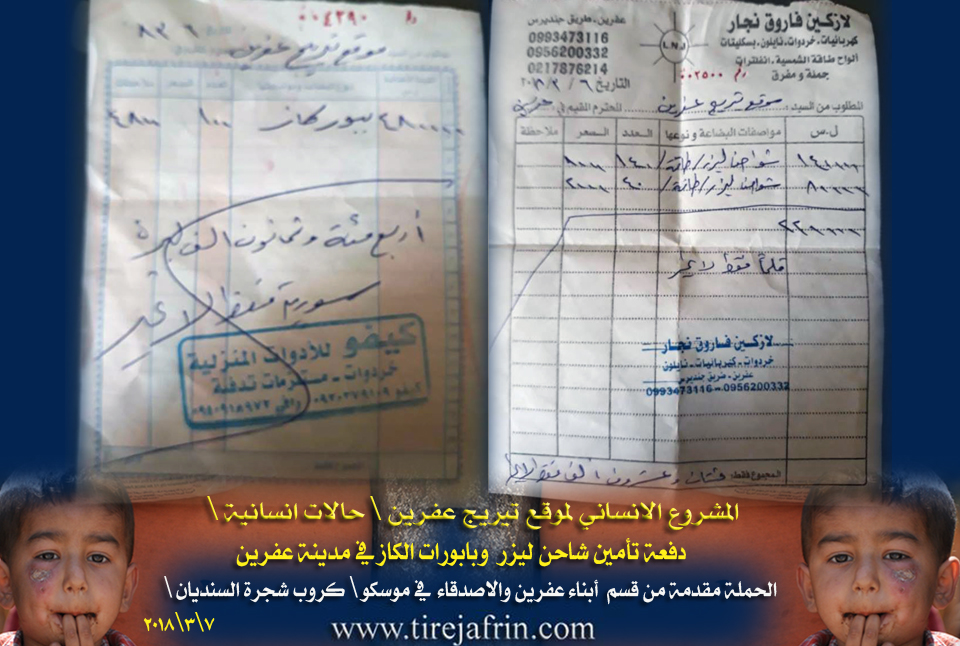 لازكين فاروق نجار
كهربائيات - خردوات - نايلون - بسكليتات
الواح طاقة الشمسية - انفلترات
جملة و مفرق
عفرين - طريق جنديرس
0993473116
0956200332
0217876214
رقم ٠٠٢٥٠٠
التاريخ ٦ / ٣ / ٢٠١
المطلوب من السيد: موقع تيريج عفرين المحترم المقيم في
ل.س مواصفات البضاعة ونوعها العدد السعر ملاحظة
شواحن ليزر / طاقة /
شواحن ليزر / طاقة / ٤٠
فقط لاغير
لازكين فاروق نجار
خردوات - كهربائيات - نايلون
عفرين - طريق جنديرس
0993473116 - 0956200332
المجموع فقط: مئتان وعشرون ألف فقط لاغير
٠٠٤٢٩٠
موقع تيريج عفرين
ببور كاز ١٠٠
أربع مئة وثمانون الف ليرة
سورية فقط لاغير
كيفو للأدوات المنزلية
خردوات - مستلزمات تدفئة
المشروع الانساني لموقع تيريج عفرين \ حالات انسانية \
دفعة تأمين شاحن ليزر وبابورات الكاز في مدينة عفرين
الحملة مقدمة من قسم أبناء عفرين والاصدقاء في موسكو \ كروب شجرة السنديان \
٢٠١٨\٣\٧
www.tirejafrin.com